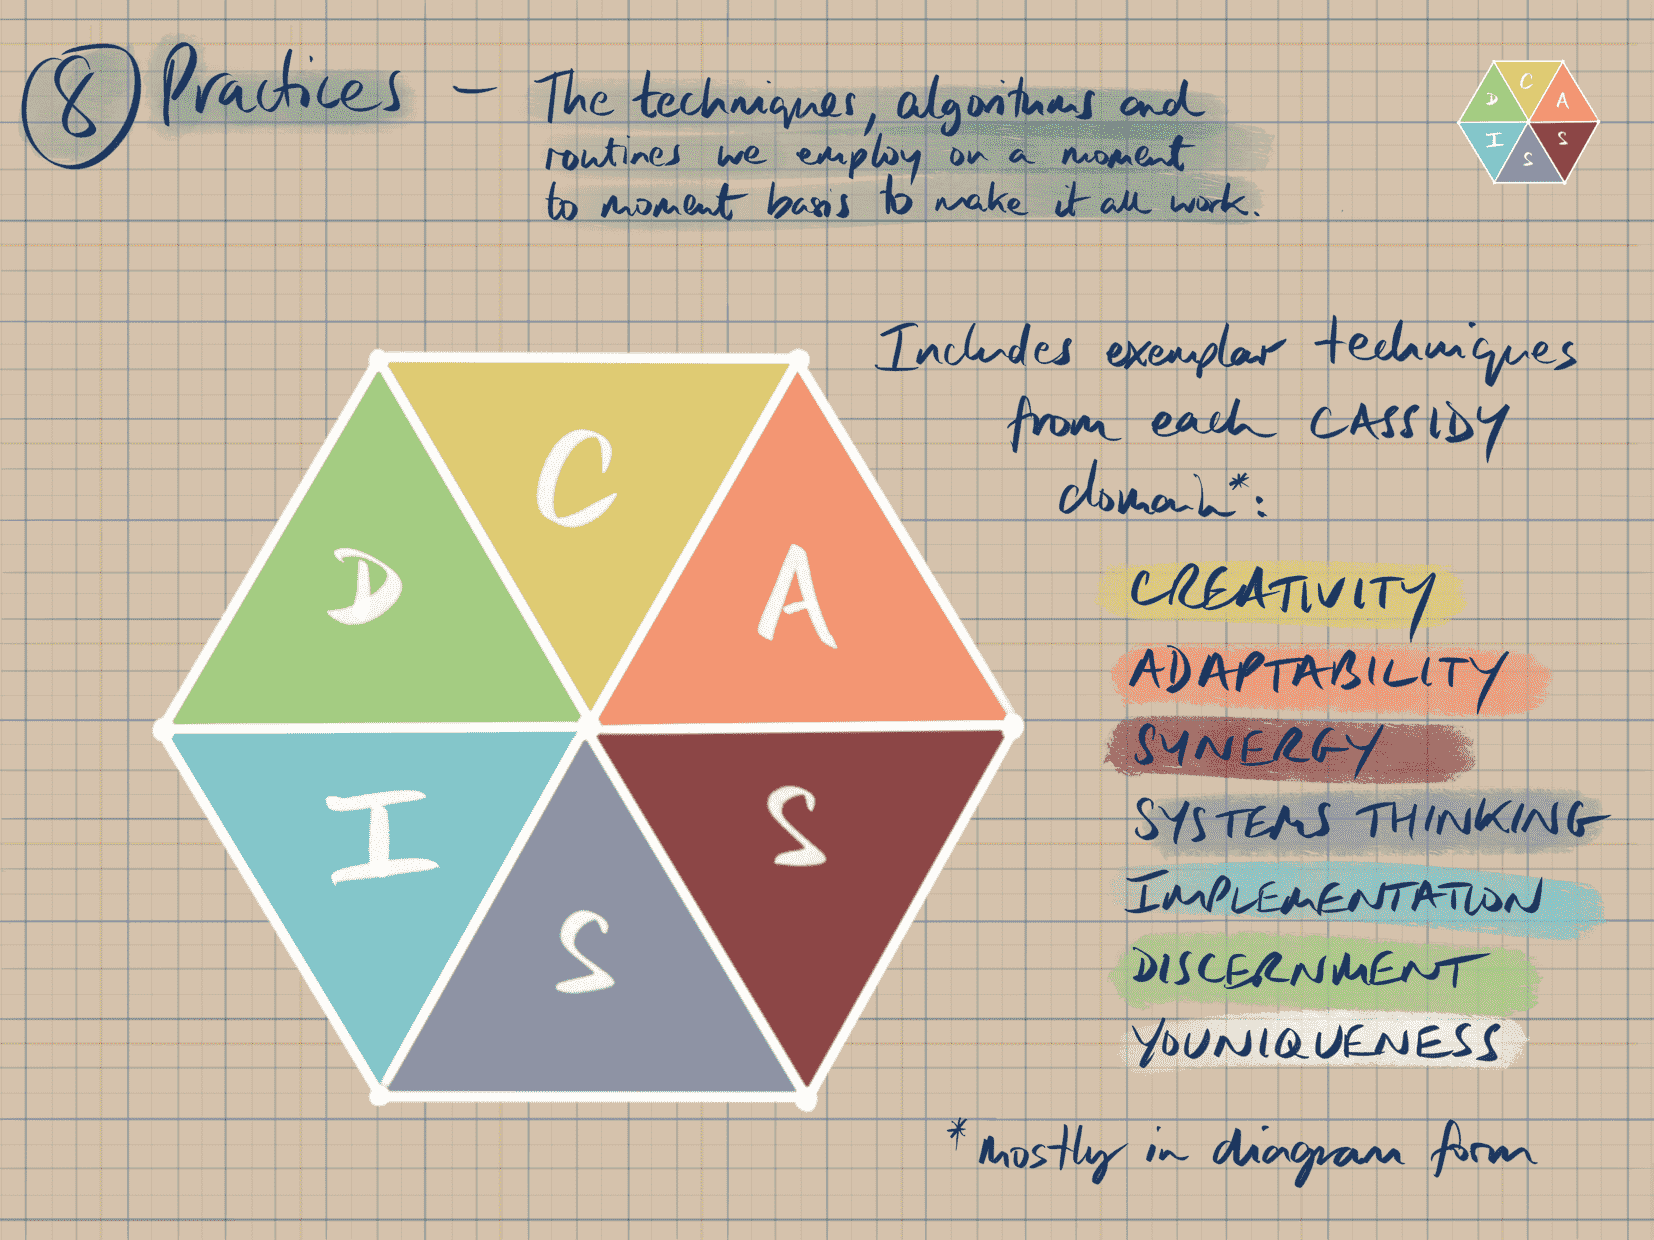 8 Practices - The techniques, algorithms and
routines we employ on a moment
to moment basis to make it all work.
C
D
A
I
S
S
Includes exemplar techniques
from each CASSIDY
domain*:
C
D
A
I
S
S
CREATIVITY
ADAPTABILITY
SYNERGY
SYSTEMS THINKING
IMPLEMENTATION
DISCERNMENT
YOUNIQUENESS
*mostly in diagram form